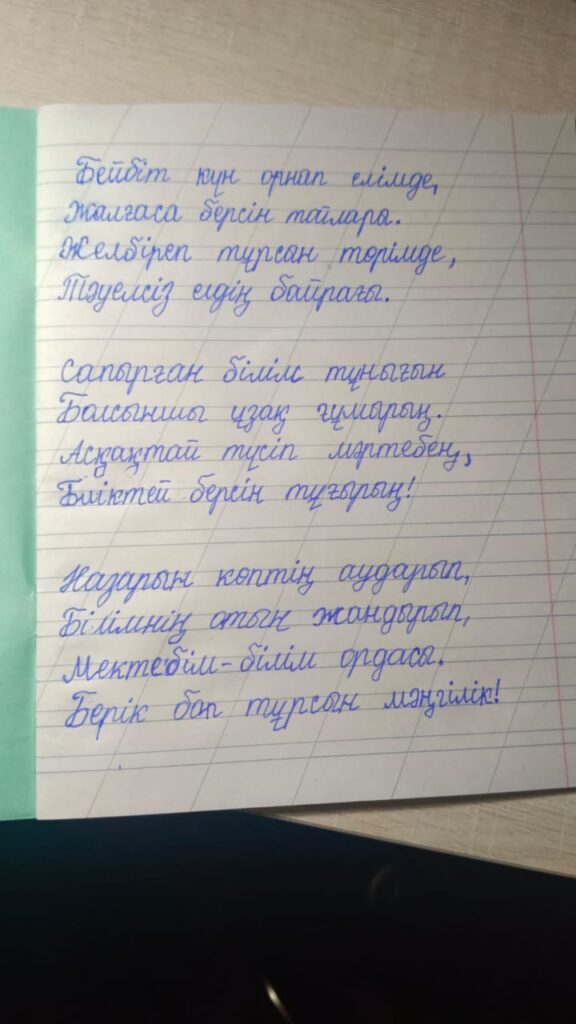 Бейбіт күн орнап елімде,
Жалғаса берсін тайлары.
Желбіреп тұрсан төрімде,
Тәуелсіз елдің байрағы.
Сапырған білім тұнығын
Болсыншы ұзақ ғұмарың.
Асқақтай түсіп мәртебең,
Биіктей берсін тұғырың!
Назарын көптің аударып,
Білімнің отын жандырып,
Мектебім-білім ордасы.
Берік боп тұрсын мәңгілік!